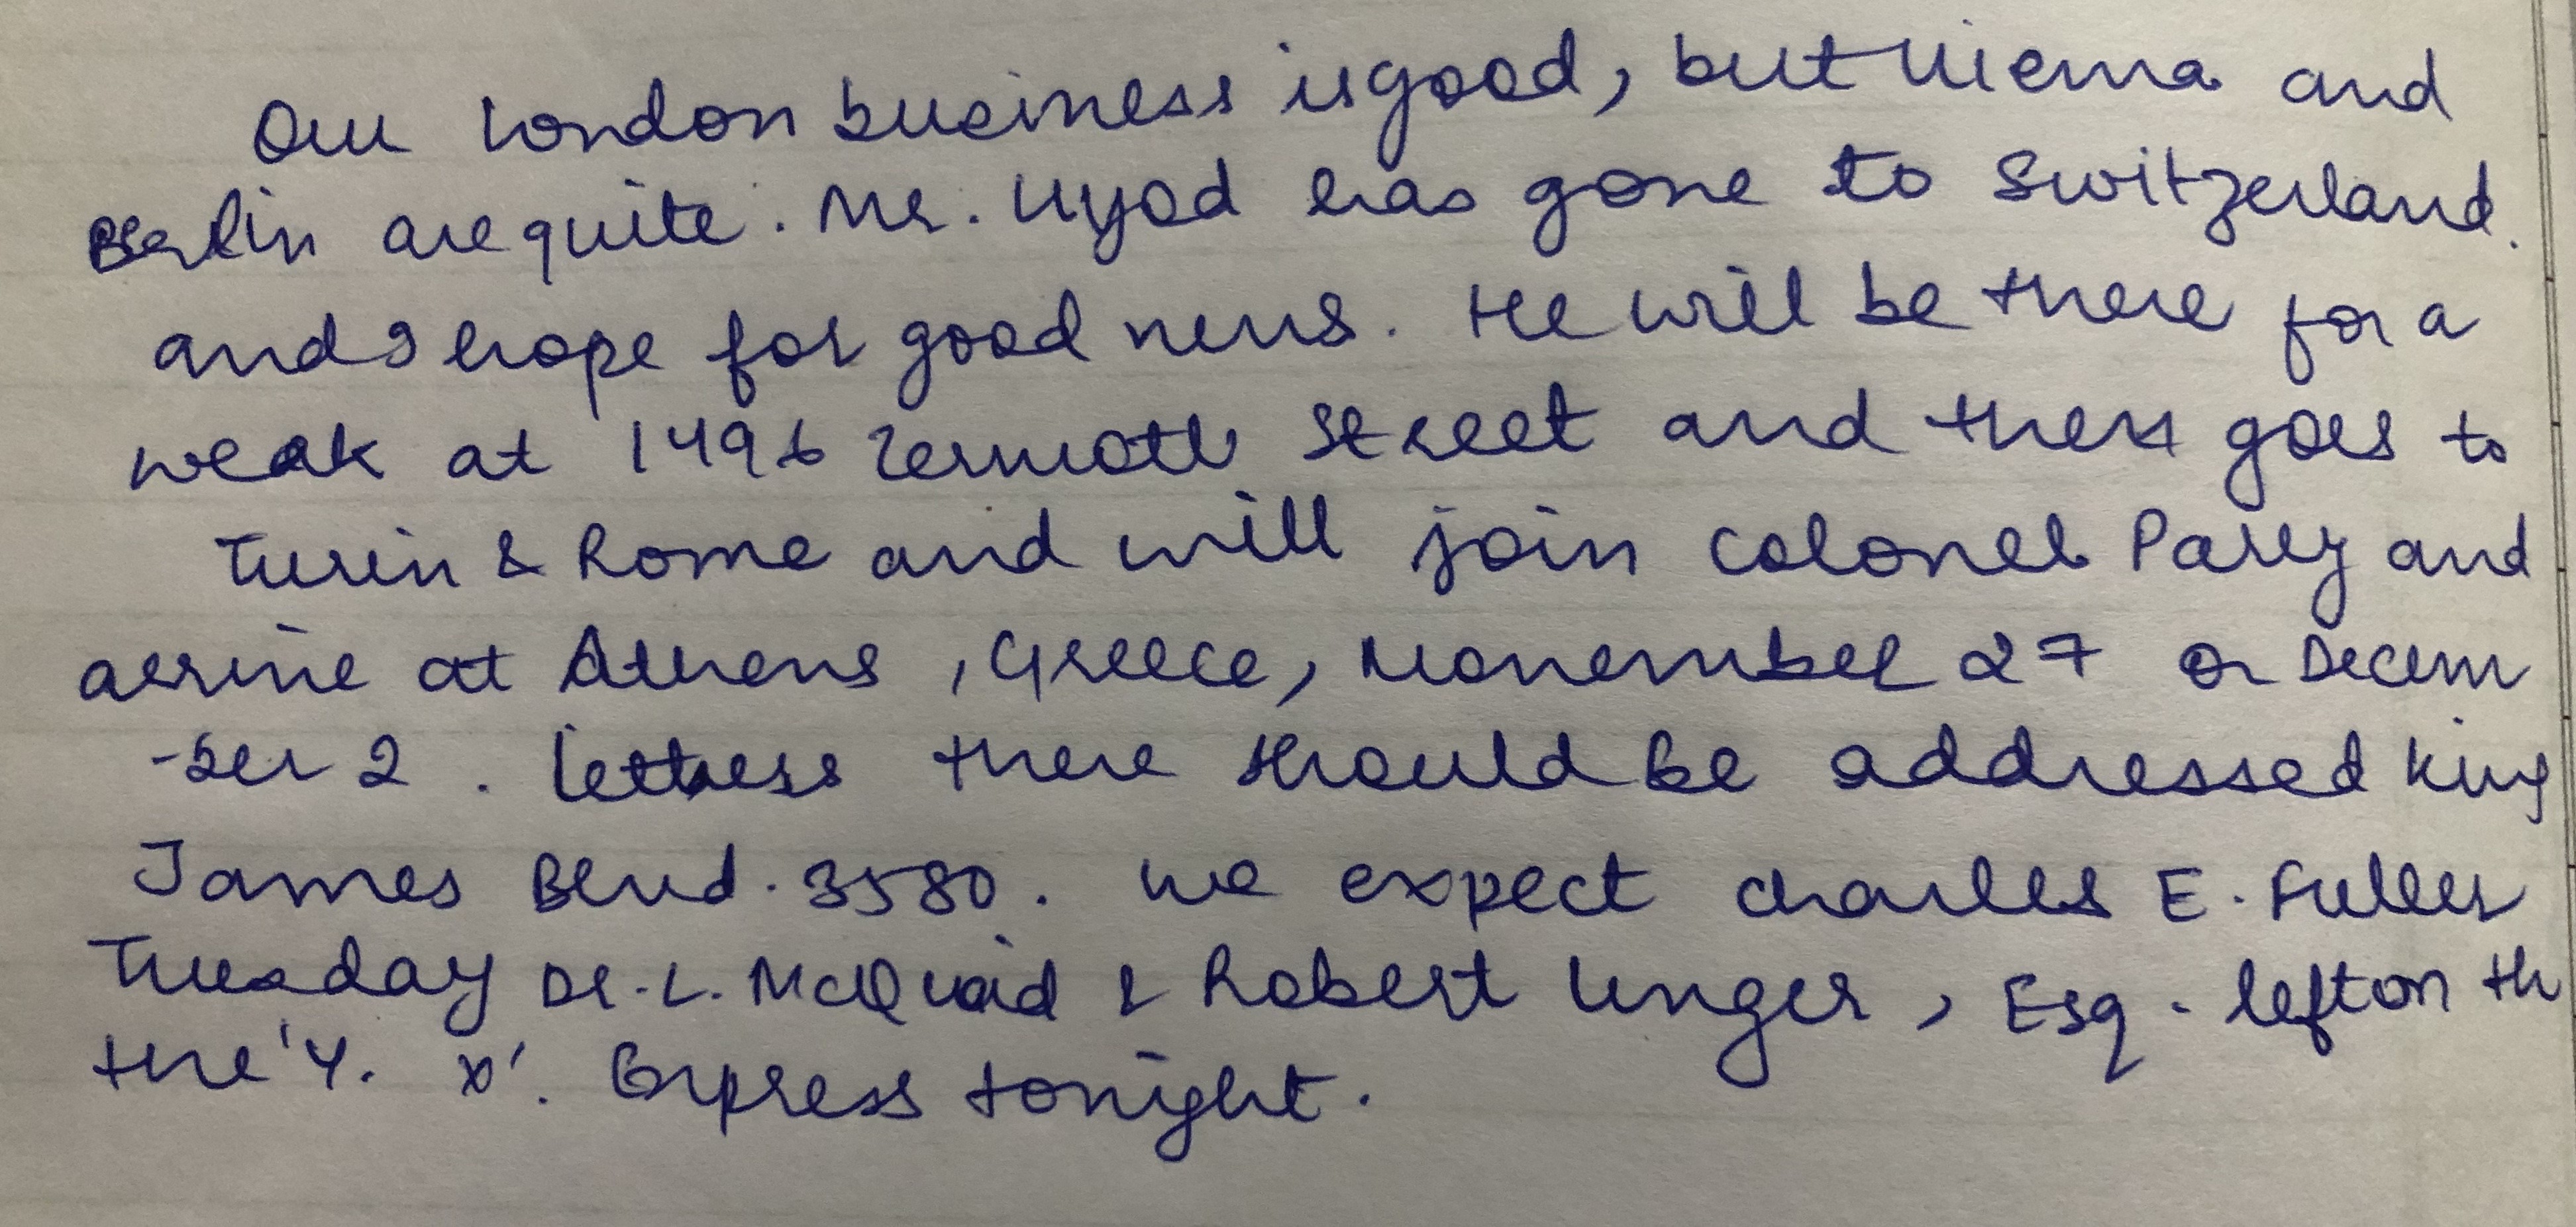 Our London business is good, but Vienna and
Berlin are quite. Mr. Uyod has gone to Switzerland.
and I hope for good news. He will be there for a
weak at 1496 Zermott Street and then goes to
Turin & Rome and will join Colonel Parry and
arrive at Athens, Greece, November 27 or Decem
-ber 2. Letters there should be addressed King
James Blvd. 3580. We expect Charles E. Fuller
Tuesday Dr. L. McQuaid & Robert Unger, Esq. left on th
the 'Y. X'. Express tonight.